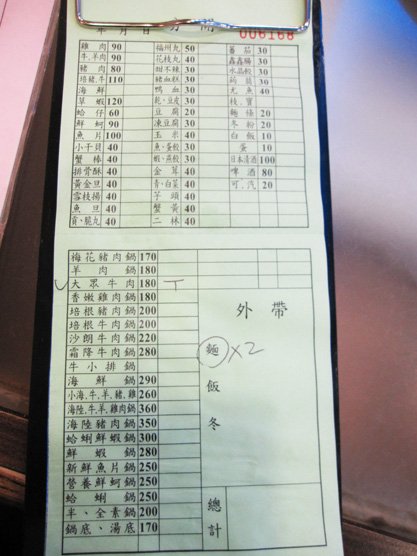 年 月 日 分 開 006168
雞肉 90 福州丸 50 蕃茄 30
牛.羊肉 90 花枝丸 40 鑫鑫腸 30
豬肉 80 甜不辣 30 水晶餃 30
培豬.牛 110 豬血糕 30 30
海鮮 鴨血 30 尤魚 40
草蝦 120 乾.豆皮 30 枝.寶
蛤仔 60 豆腐 20 麵條 20
鮮蚵 90 凍豆腐 30 冬粉 20
魚片 100 玉米 40 白飯 10
小干貝 40 魚.蛋餃 30 蛋 10
蟹棒 40 蝦.燕餃 30 日本清酒 100
排骨酥 40 金茸 40 啤酒 80
黃金旦 40 青.白菜 40 可.汽 20
雪枝揚 40 芋頭 40
魚旦 40 蟹黃 40
貢.脆丸 40 二林 40
梅花豬肉鍋 170
羊肉鍋 180
大眾牛肉鍋 180 一
香嫩雞肉鍋 180
培根豬肉鍋 200
培根牛肉鍋 200
沙朗牛肉鍋 220
霜降牛肉鍋 280
牛小排鍋
海鮮鍋 290
小海.牛.羊.豬.雞 260
海陸.牛.羊.雞肉鍋 360
海陸豬肉鍋 350
蛤蜊鮮蝦鍋 300
鮮蝦鍋 280
新鮮魚片鍋 250
營養鮮蚵鍋 250
蛤蜊鍋 250
半、全素鍋 200
鍋底、湯底 170
外帶
麵 X2
飯
冬
總計